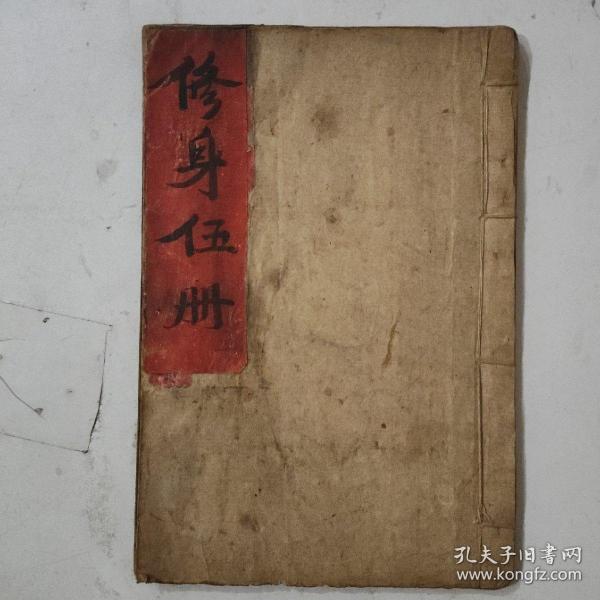 修身伍册
孔夫子旧書网
www.kongfz.com